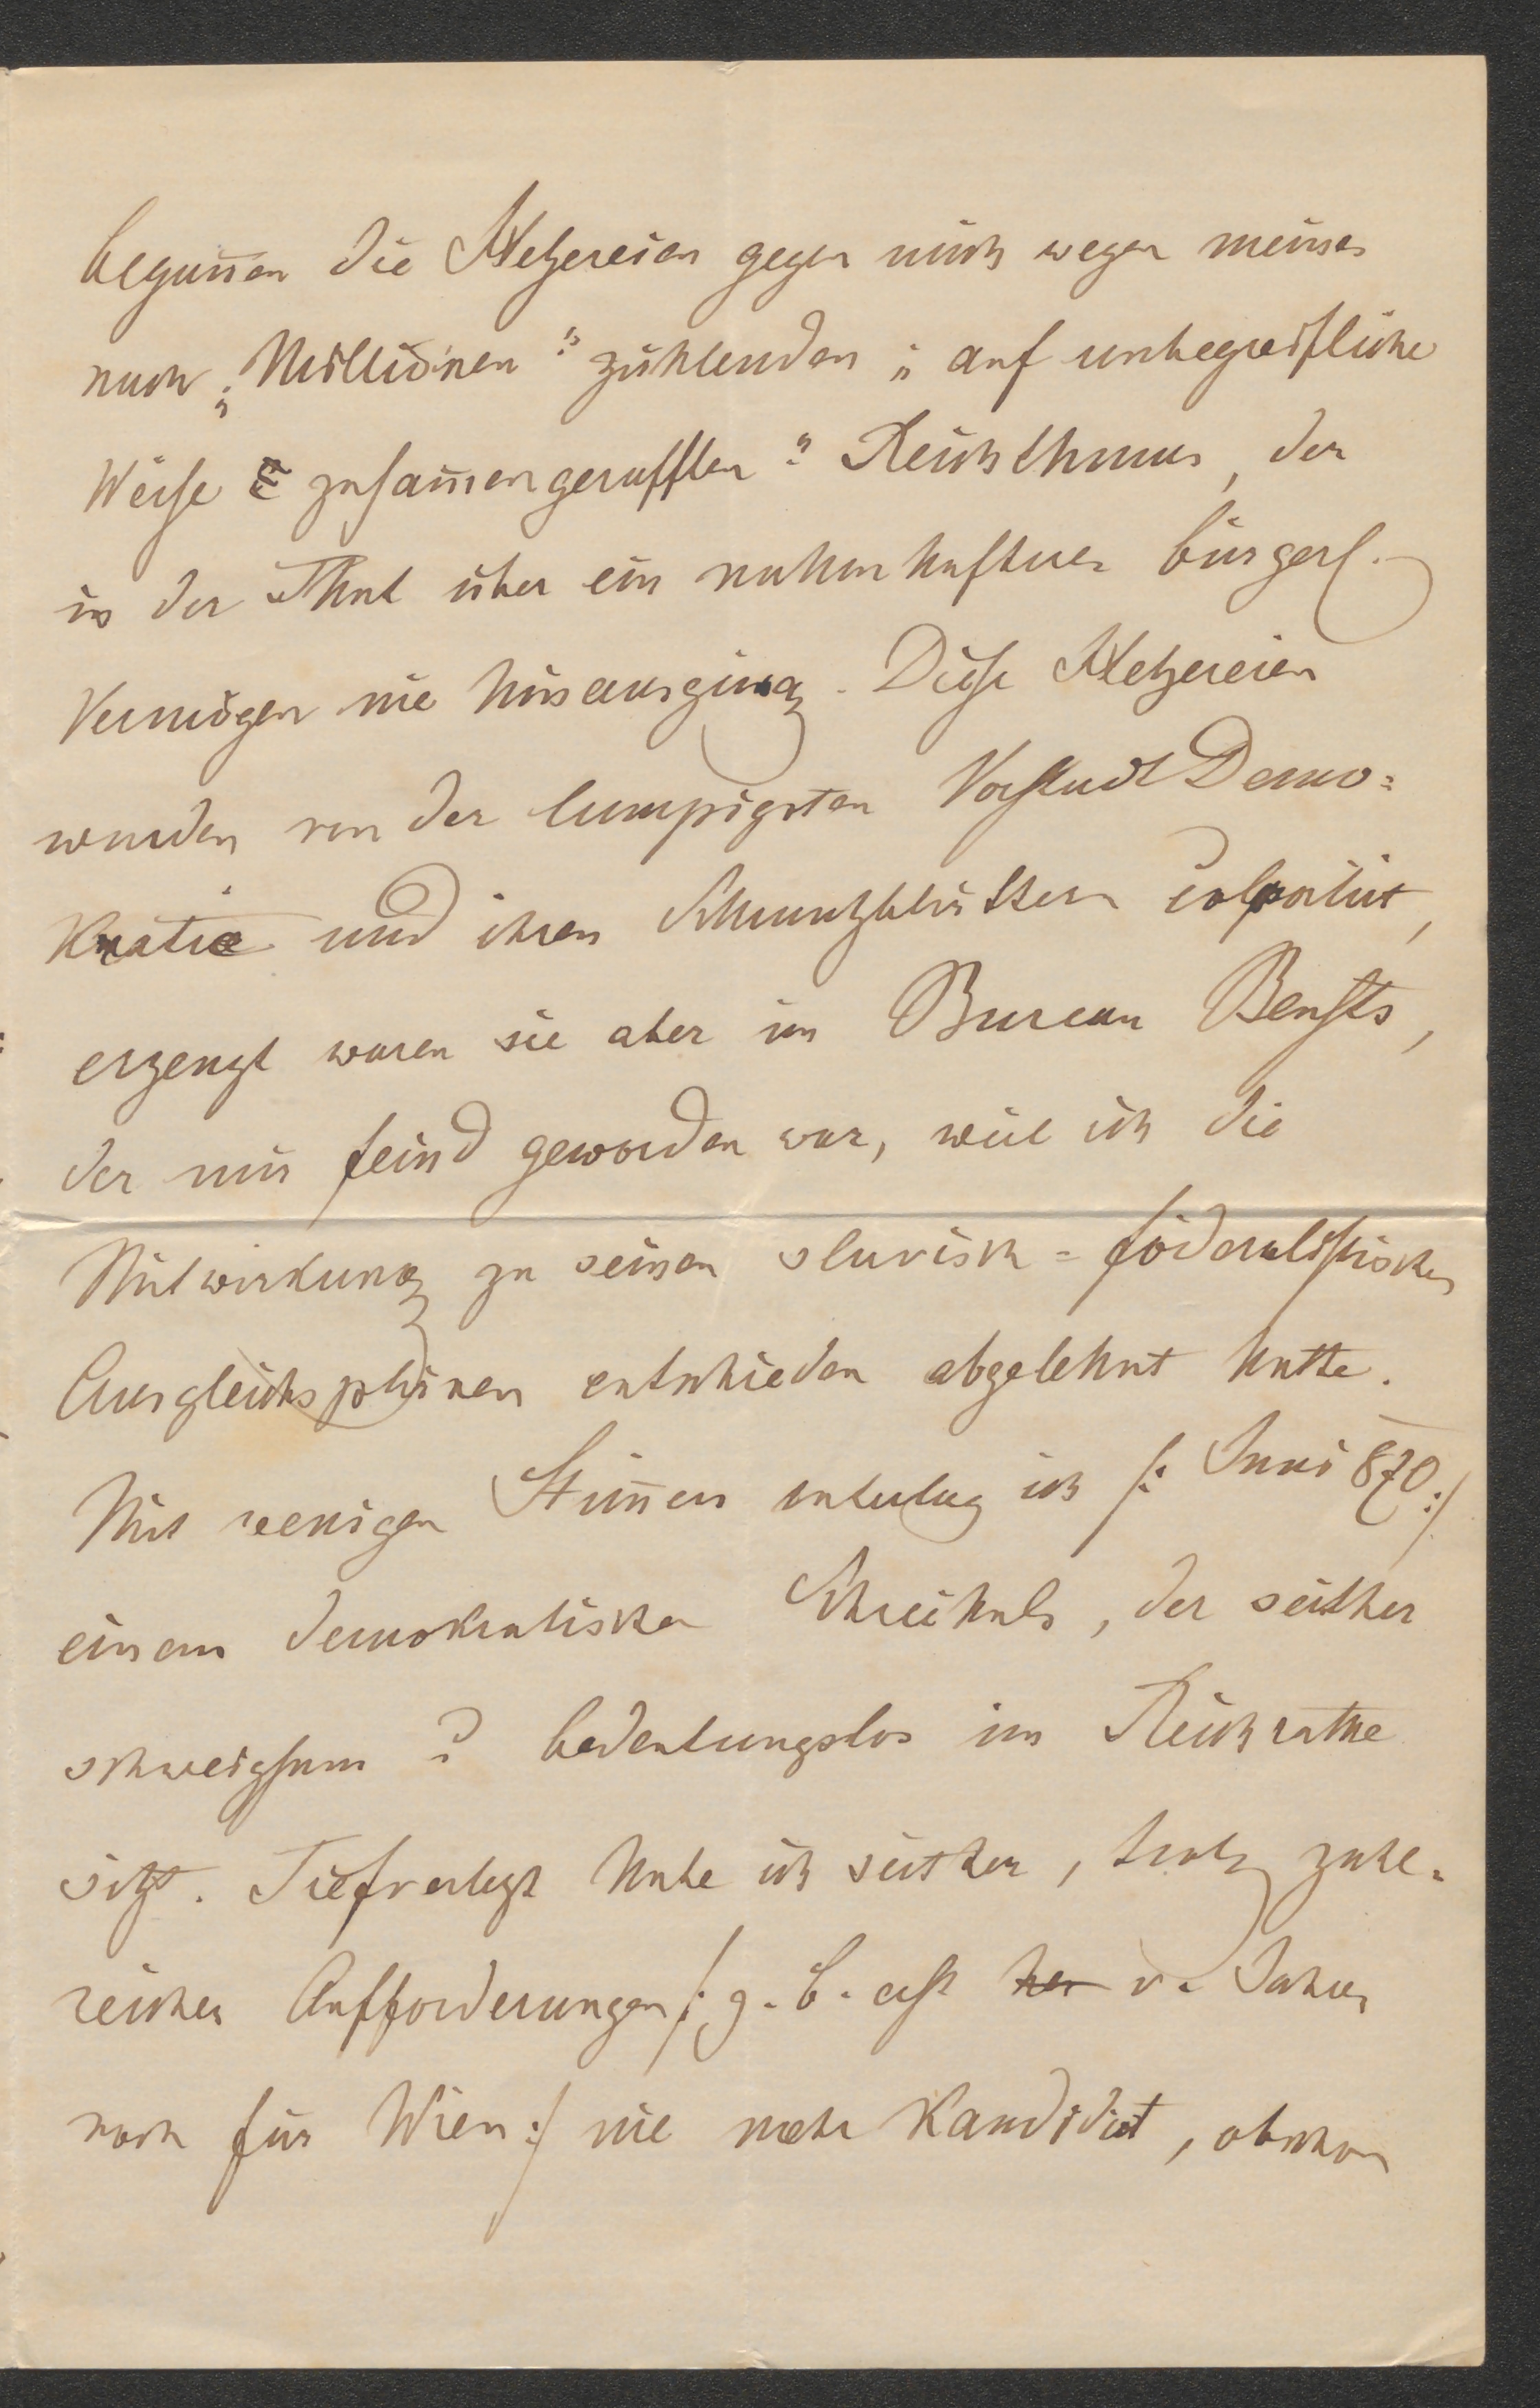 begannen die Hetzereien gegen mich wegen meines
nach „Millionen“ zählenden „auf unbegreifliche
Weise zusammengerafften“ Reichthums, der
in der That über ein nahmhaftes bürgerl.
Vermögen nie hinausging. Diese Hetzereien
wurden von der lumpigsten Vorstadt Demo-
kratie und ihren Schmutzblättern colportirt,
erzeugt waren sie aber im Bureau Beusts,
der mir feind geworden war, weil ich die
Mitwirkung zu seinen slavisch-föderalistischen
Ausgleichsplänen entschieden abgelehnt hatte.
Mit wenigen Stim̅en unterlag ich /: Juni 870 :/
einem demokratischen Schreihals, der seither
schweigsam & bedeutungslos im Reichsrathe
sitzt. Tiefverletzt habe ich seither, trotz zahl-
reicher Aufforderungen /: z. B. erst v. Jahres
noch für Wien :/ nie mehr kandidirt, obschon